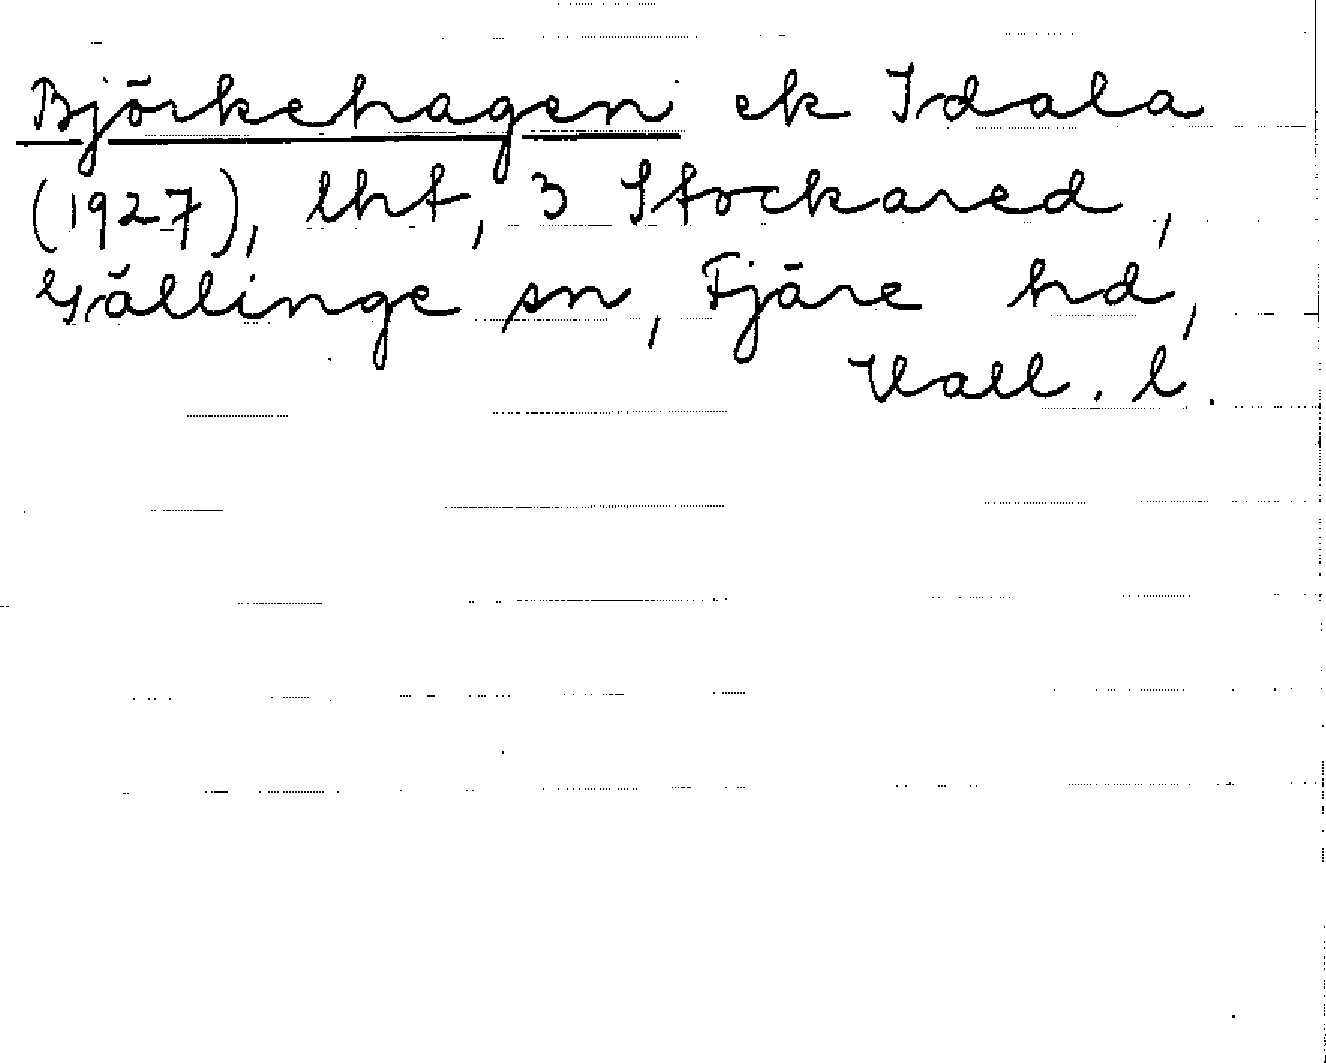 Björkehagen ek Idala
(1927), lht, 3 Stockared,
Gällinge sn, Fjäre hd,
Hall. l.